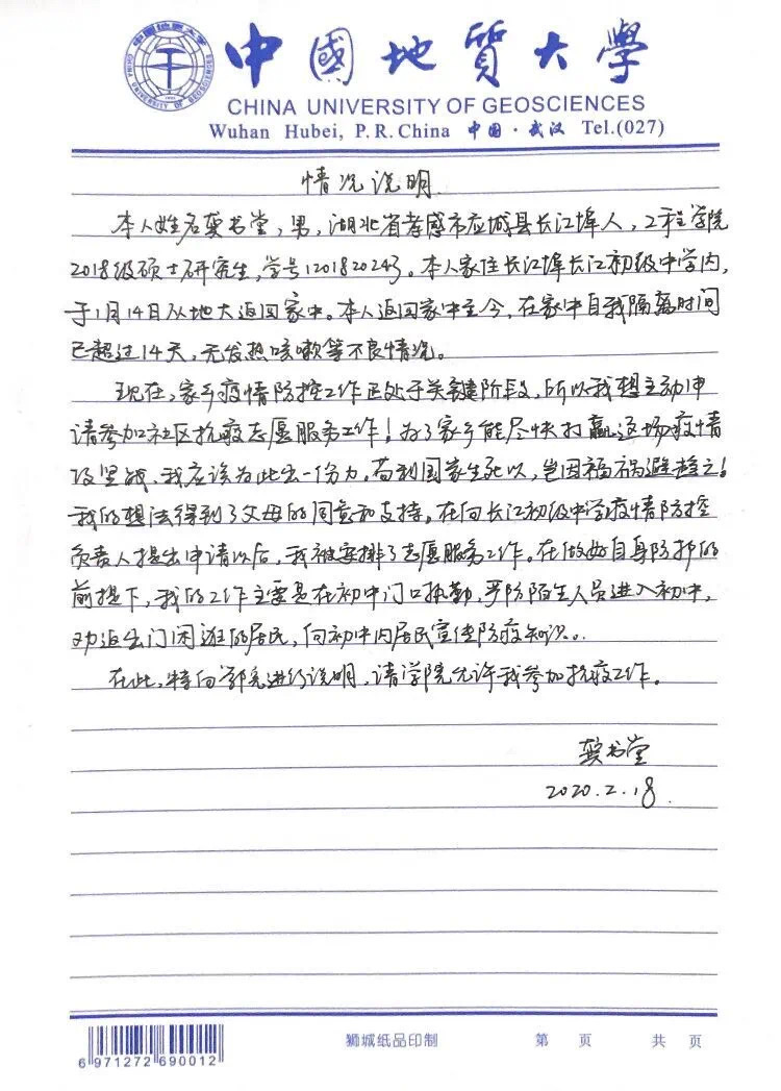 中國地質大學
CHINA UNIVERSITY OF GEOSCIENCES
Wuhan Hubei, P.R.China 中国·武汉 Tel.(027)
情况说明
本人姓名龚书堂，男，湖北省孝感市应城县长江埠人，工程学院
2018级硕士研究生，学号120182024。本人家住长江埠长江初级中学内，
于1月14日从地大返回家中。本人返回家中至今，在家中自我隔离时间
已超过14天，无发热咳嗽等不良情况。
现在，家乡疫情防控工作正处于关键阶段，所以我想主动申
请参加社区抗疫志愿服务工作！为了家乡能尽快打赢这场疫情
攻坚战，我应该为此出一份力。苟利国家生死以，岂因福祸避趋之！
我的想法得到了父母的同意和支持，在向长江初级中学疫情防控
负责人提出申请以后，我被安排了志愿服务工作。在做好自身防护的
前提下，我的工作主要是在初中门口执勤，严防陌生人员进入初中，
劝返出门闲逛的居民，向初中内居民宣传防疫知识。
在此，特向学院进行说明，请学院允许我参加抗疫工作。
龚书堂
2020.2.18
6 971272 690012
狮城纸品印制 第 页 共 页